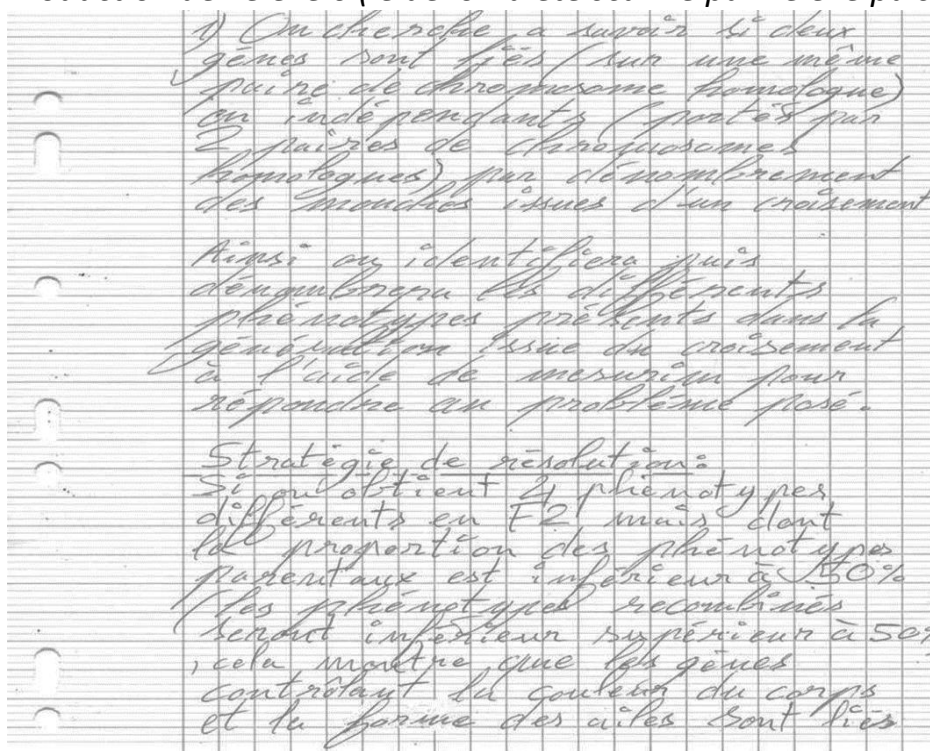 1) On cherche à savoir si deux
gènes sont liés (sur une même
paire de chromosome homologue)
ou indépendants (portés par
2 paires de chromosomes
homologues) par dénombrement
des mouches issues d'un croisement
Ainsi on identifiera puis
dénombrera les différents
phénotypes présents dans la
génération issue du croisement
à l'aide de mesurim pour
répondre au problème posé.
Stratégie de résolution:
Si on obtient 4 phénotypes
différents en F2 mais dont
la proportion des phénotypes
parentaux est inférieur à 50%
(les phénotypes recombinés
seront inférieur supérieur à 50%
, cela montre que les gènes
contrôlant la couleur du corps
et la forme des ailes sont liés